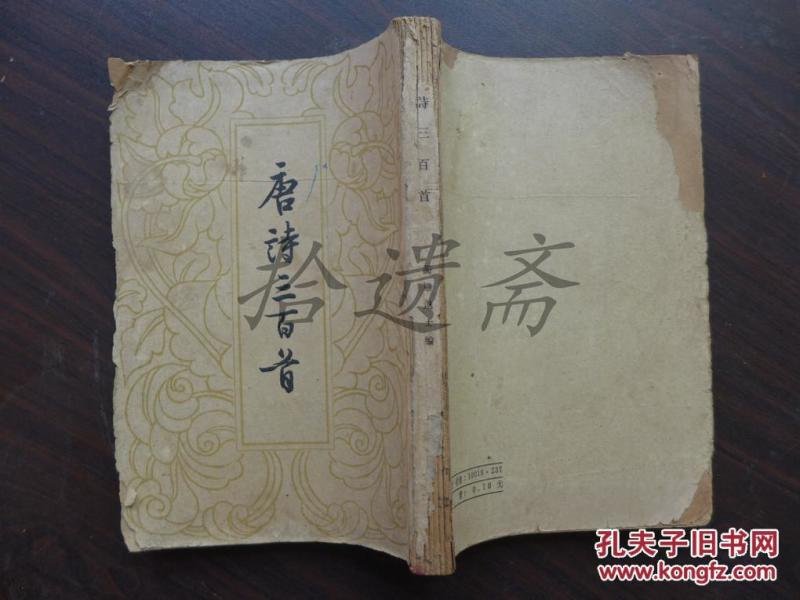 唐詩三百首
詩三百首
編
10019·237
0.70元
拾遗斋
孔夫子旧书网
www.kongfz.com